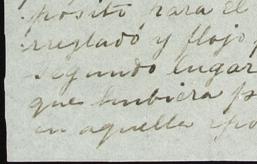 pósito para el
rreglado y flojo
segundo lugar
que hubiera p
en aquella épo